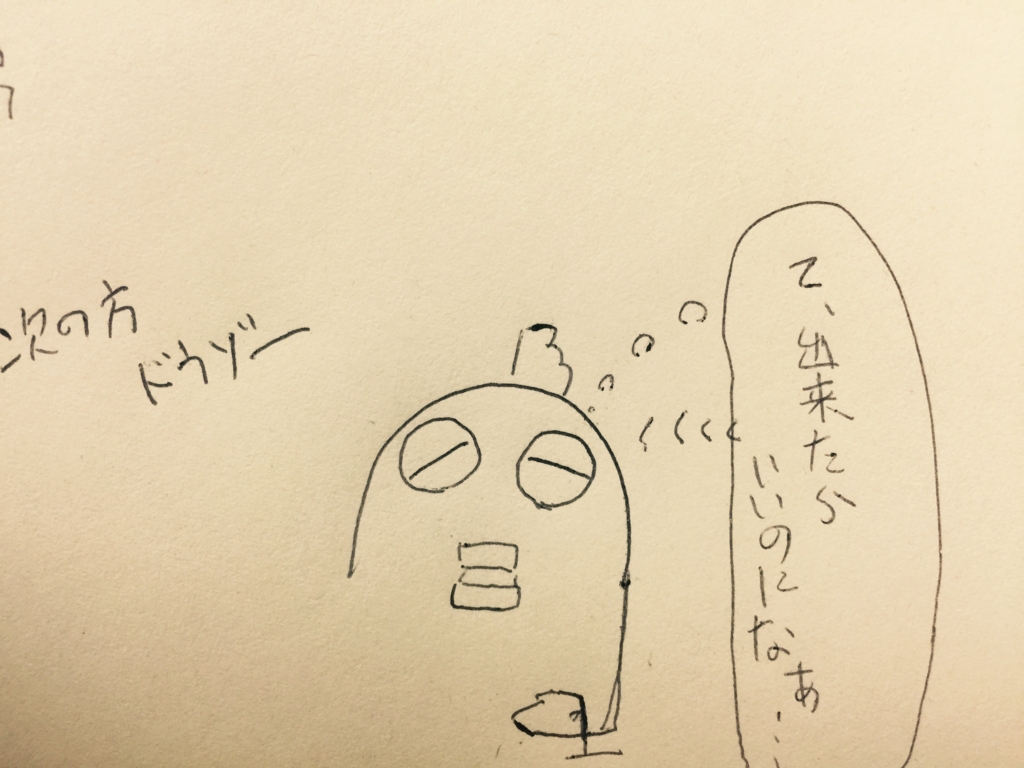 て、出来たら
いいのになぁ…
次の方
ドウゾー